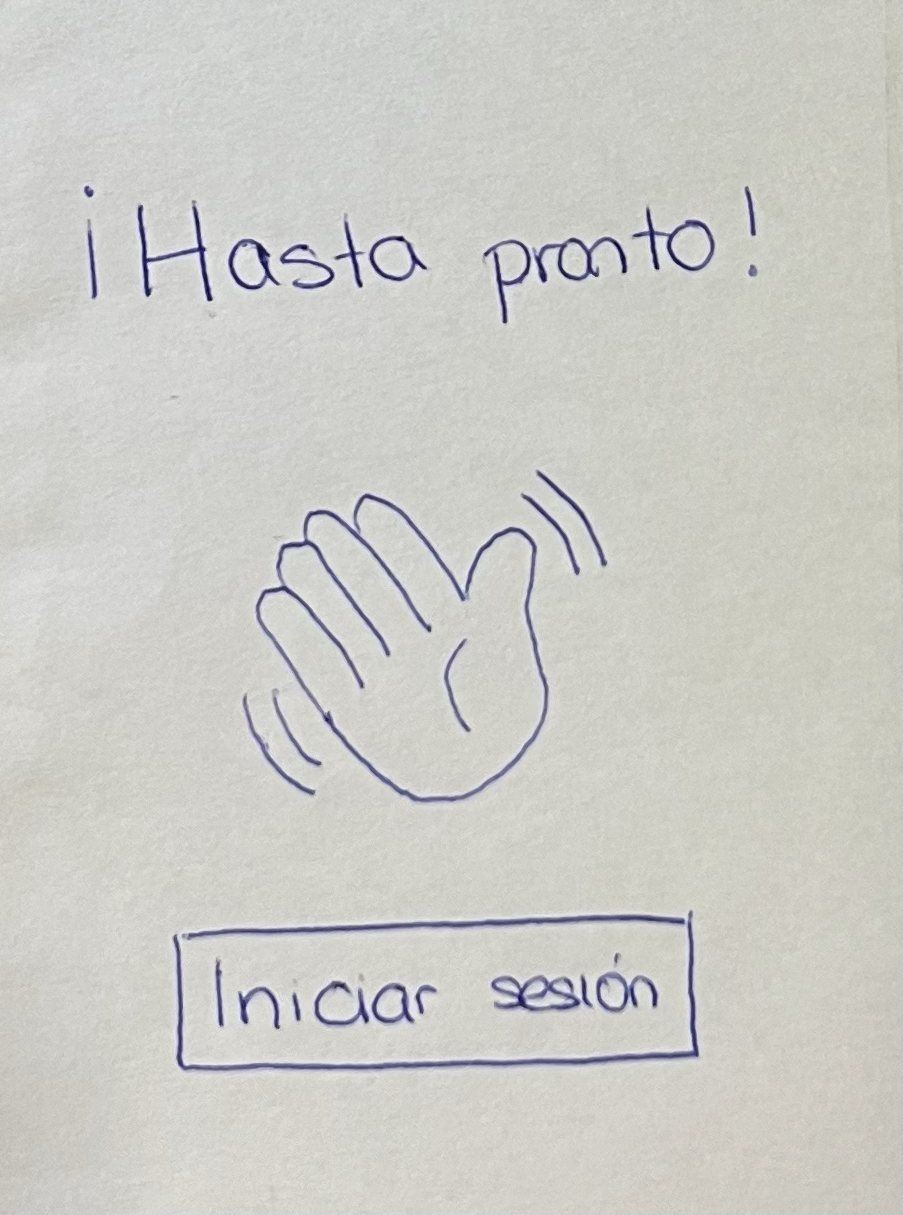 ¡Hasta pronto!
Iniciar sesión